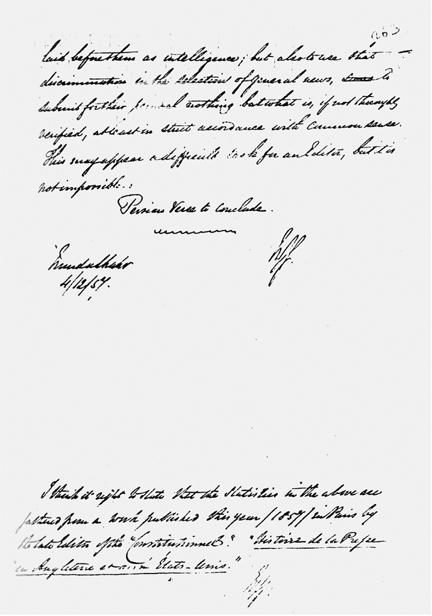 263
laid before them as intelligence; but also to use that
discrimination in the selection of general news, to
submit for their perusal nothing but what is, if not thoroughly
verified, at least in strict accordance with common sense.
This may appear a difficult task for an Editor, but it is
not impossible.:
Persian Verse to conclude.
4/12/57.
I think it right to state that the Statistics in the above are
gathered from a work published this year /1857/ in Paris by
the late Editor of the "Constitutionnel." "Histoire de la Presse
en Angleterre et aux États-Unis."